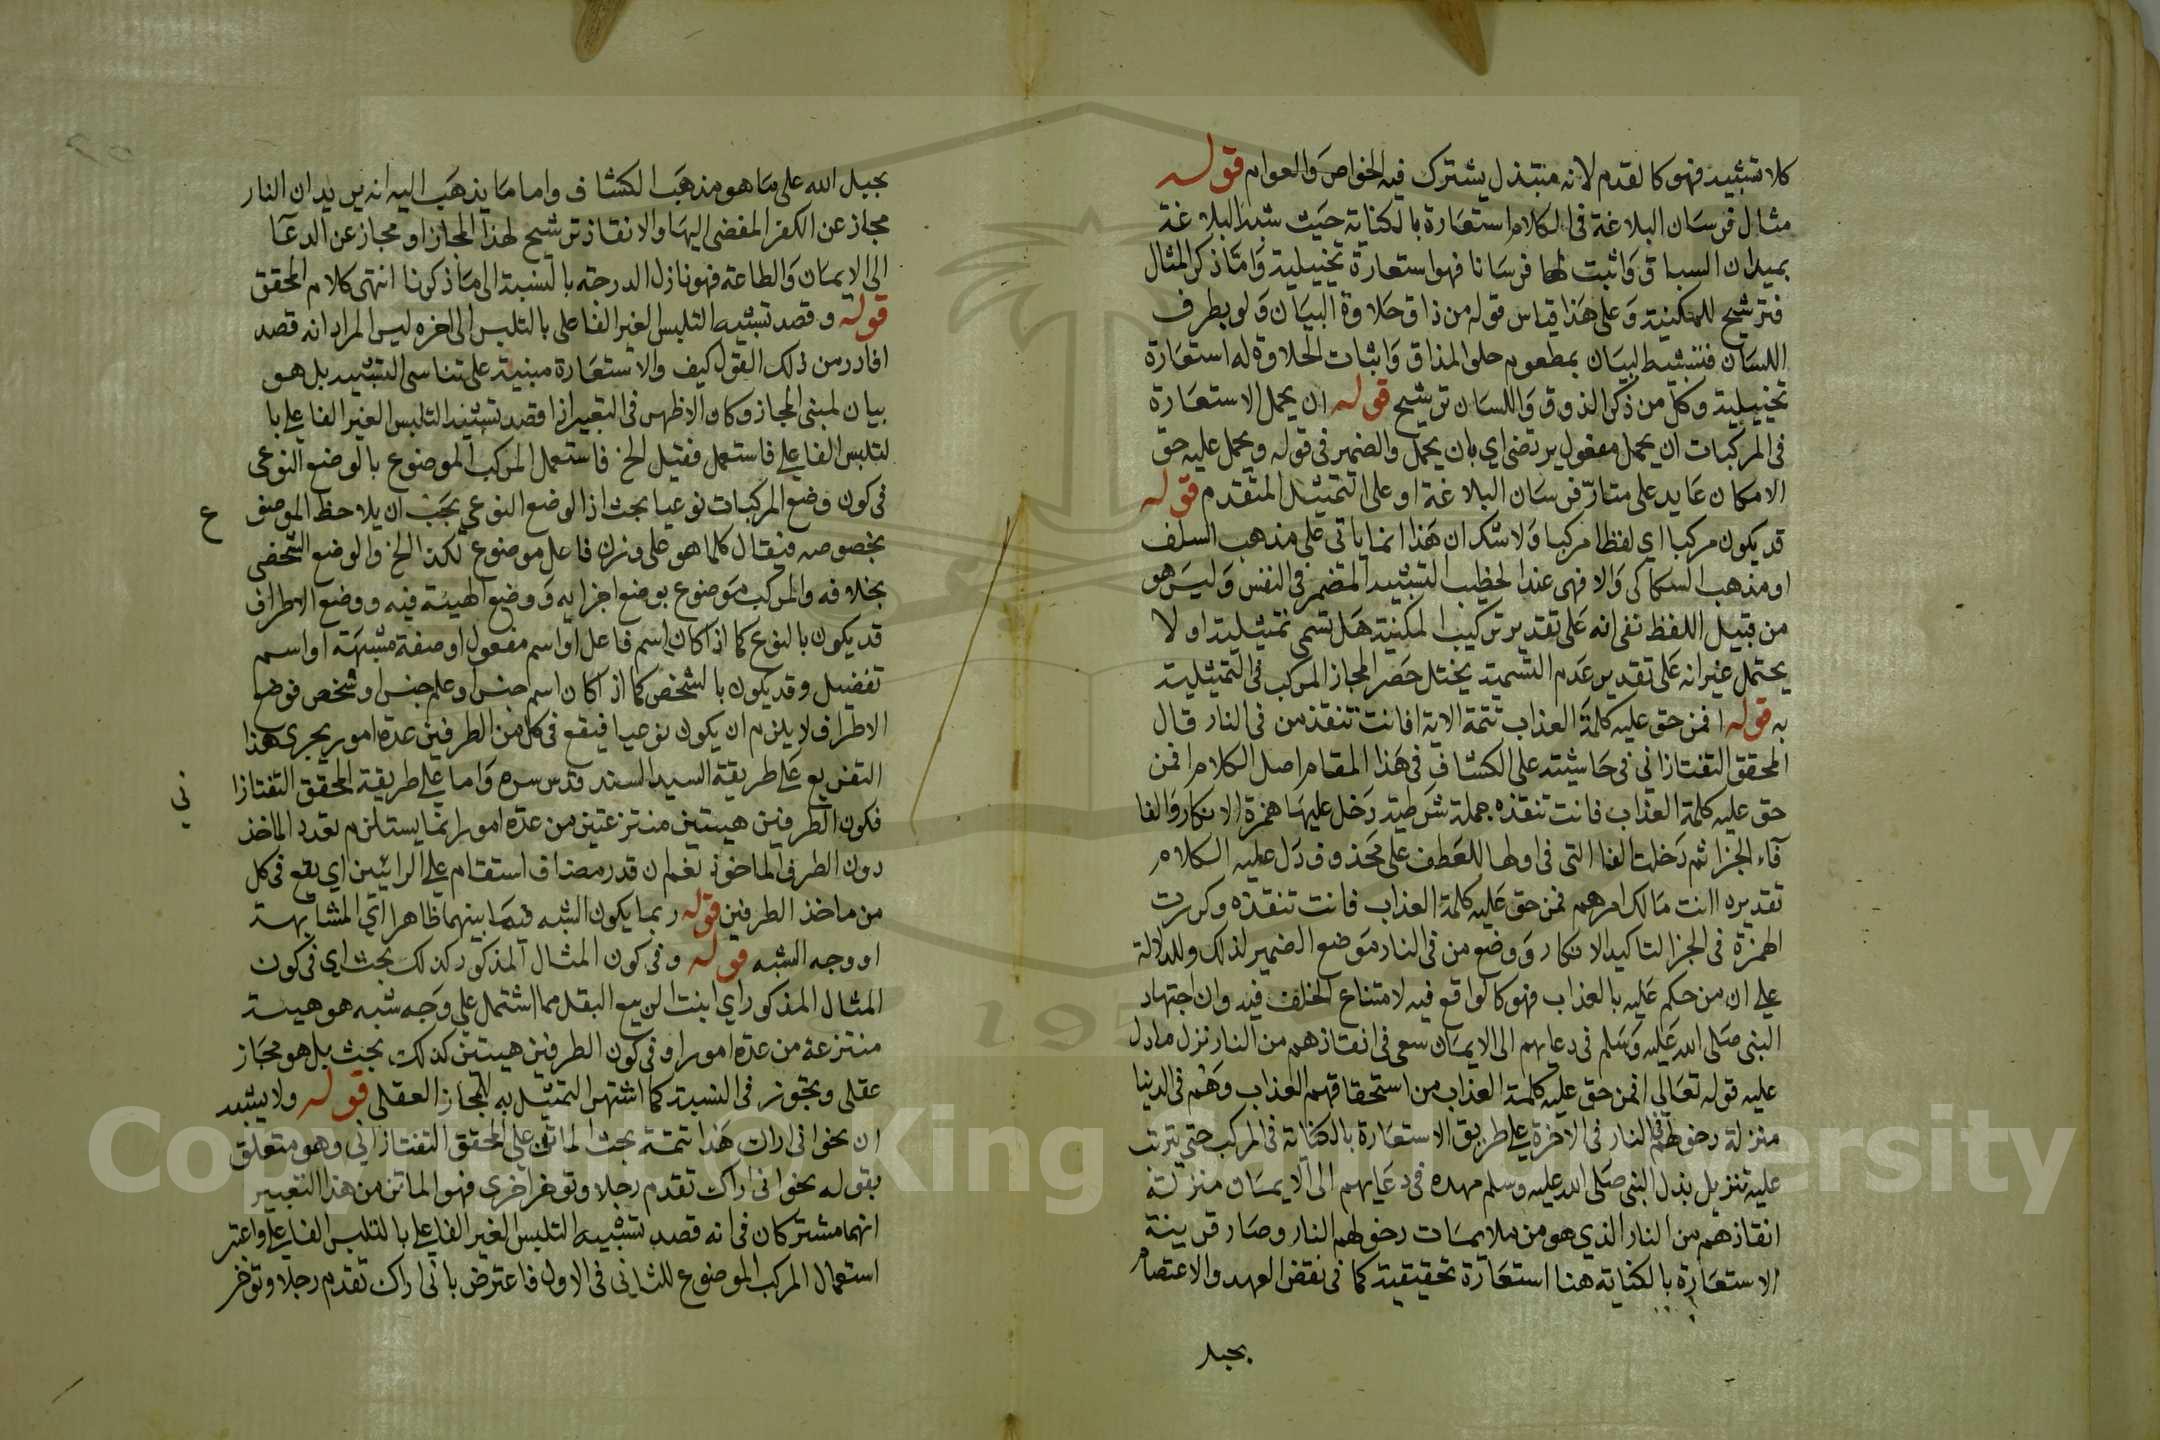 كلا تشبيه فهو كما تقدم لانه مبتذل يشترك فيه الخواص والعوام قوله
مثال فرسان البلاغة في الكلام استعارة بالكناية حيث شبه البلاغة
بميدان السباق واثبت لها فرسانا فهو استعارة تخييلية واما ذكر المثال
فترشيح للمكنية وعلى هذا قياس قوله من ذاق حلاوة البيان ولو بطرف
اللسان فتشبيه البيان بمطعوم حلو المذاق واثبات الحلاوة له استعارة
تخييلية وكل من ذكر الذوق واللسان ترشيح قوله ان يحمل الاستعارة
في المركبات ان يحمل مفعول يرتضي اي بان يحمل والضمير في قوله ويحمل عليه حق
الامكان عايد على فرسان البلاغة او على التمثيل المتقدم قوله
قد يكون مركبا اي لفظا مركبا ولا شك ان هذا انما ياتي على مذهب السلف
او مذهب السكاكى والا فهى عند الخطيب التشبيه المضمر في النفس وليس هو
من قبيل اللفظ نفى انه على تقدير تركيب المكنية هل تسمى تمثيلية او لا
يحتمل غير انه على تقدير عدم التسمية يختل حصر المجاز المركب في التمثيلية
به قوله افمن حق عليه كلمة العذاب تتمة الاية افانت تنقذ من في النار قال
المحقق التفتازاني في حاشيته على الكشاف في هذا المقام اصل الكلام افمن
حق عليه كلمة العذاب فانت تنقذه جملة شرطية دخل عليها همزة الانكار والفا
فاء الجزا ثم دخلت الفا التى في اولها للعطف على محذوف دل عليه الكلام
تقديره اانت مالك امرهم فمن حق عليه كلمة العذاب فانت تنقذه وكررت
الهمزة في الجزا لتاكيد الانكار ووضع من في النار موضع الضمير لذلك وللدلالة
على ان من حكم عليه بالعذاب فهو كالواقع فيه لامتناع الخلف فيه وان اجتهاد
النبى صلى الله عليه وسلم في دعايهم الى الايمان سعى في انقاذهم من النار نزل ما دل
عليه قوله تعالى افمن حق عليه كلمة العذاب من استحقاقهم العذاب وهم في الدنيا
منزلة دخولهم في النار في الاخرة على طريق الاستعارة بالكناية في المركب حتى يترتب
عليه تنزيل بذل النبى صلى الله عليه وسلم جهده في دعايهم الى الايمان منزلة
انقاذهم من النار الذي هو من ملايمات دخولهم النار وصار قرينة
الاستعارة بالكناية هنا استعارة تحقيقية كما في نقض العهد والاعتصام
بحبل
بحبل الله على ما هو مذهب الكشاف واما ما يذهب اليه انه يريد ان النار
مجاز عن الكفر المفضى اليها والانقاذ ترشيح لهذا المجاز او مجاز عن الدعا
الى الايمان والطاعة فهو نازل الدرجه بالنسبة الى ما ذكرنا انتهى كلام المحقق
قوله وقصد تشبيه التلبس الغير الفاعلى بالتلبس الى اخره ليس المراد انه قصد
افاد من ذلك القول كيف والاستعارة مبنية على تناسى التشبيه بل هو
بيان لمبنى المجاز وكان الاظهر في التعبير اذا قصد تشبيه التلبس الغير الفاعلي با
لتلبس الفاعلي فاستعمل فقيل الخ فاستعمل المركب الموضوع بالوضع النوعى
في كون وضع المركبات نوعيا بحث اذ الوضع النوعي يجب ان يلاحظ الموضوع
بخصوصه فيقال كلما هو على وزن فاعل موضوع لكذا الخ والوضع الشخصى
بخلافه والمركب موضوع بوضع اجزايه ووضع الهيئة فيه ووضع الاطراف
قد يكون بالنوع كما اذا كان اسم فاعل او اسم مفعول او صفة مشبهة او اسم
تفضيل وقد يكون بالشخص كما اذا كان اسم جنس او علم جنس او شخص فوضع
الاطراف لا يلزم ان يكون نوعيا فيقع في كل من الطرفين عدة امور يجرى هذا
التفريع على طريقة السيد السند قدس سره واما على طريقة المحقق التفتازا
ني
فكون الطرفين هيئتين منتزعتين من عدة امور انما يستلزم تعدد الماخذ
دون الطرف الماخوذ نعم ان قدر مضاف استقام على الرائيين اي يقع في كل
من ماخذ الطرفين قوله ربما يكون الشبه فيما بينهما ظاهرا اي المشابهة
او وجه الشبه قوله وفي كون المثال المذكور كذلك بحث اي في كون
المثال المذكور اي انبت الربيع البقل مما اشتمل على وجه شبه هو هيئة
منتزعة من عدة امور او في كون الطرفين هيئتين كذلك بحث بل هو مجاز
عقلى وتجوز في النسبة كما اشتهر التمثيل به للمجاز العقلى قوله ولا يشبه
ان نحو انى اراك هذا تتمة بحث الماتن على المحقق التفتازاني وهو متعلق
بقوله نحو انى اراك تقدم رجلا وتوخر اخرى فهو الماتن من هذا التعبير
انهما مشتركان في انه قصد تشبيه التلبس الغير الفاعلي بالتلبس الفاعلي واعتبر
استعمال المركب الموضوع للثاني في الاول فاعترض بانى اراك تقدم رجلا وتوخر
Copyright © King Saud University